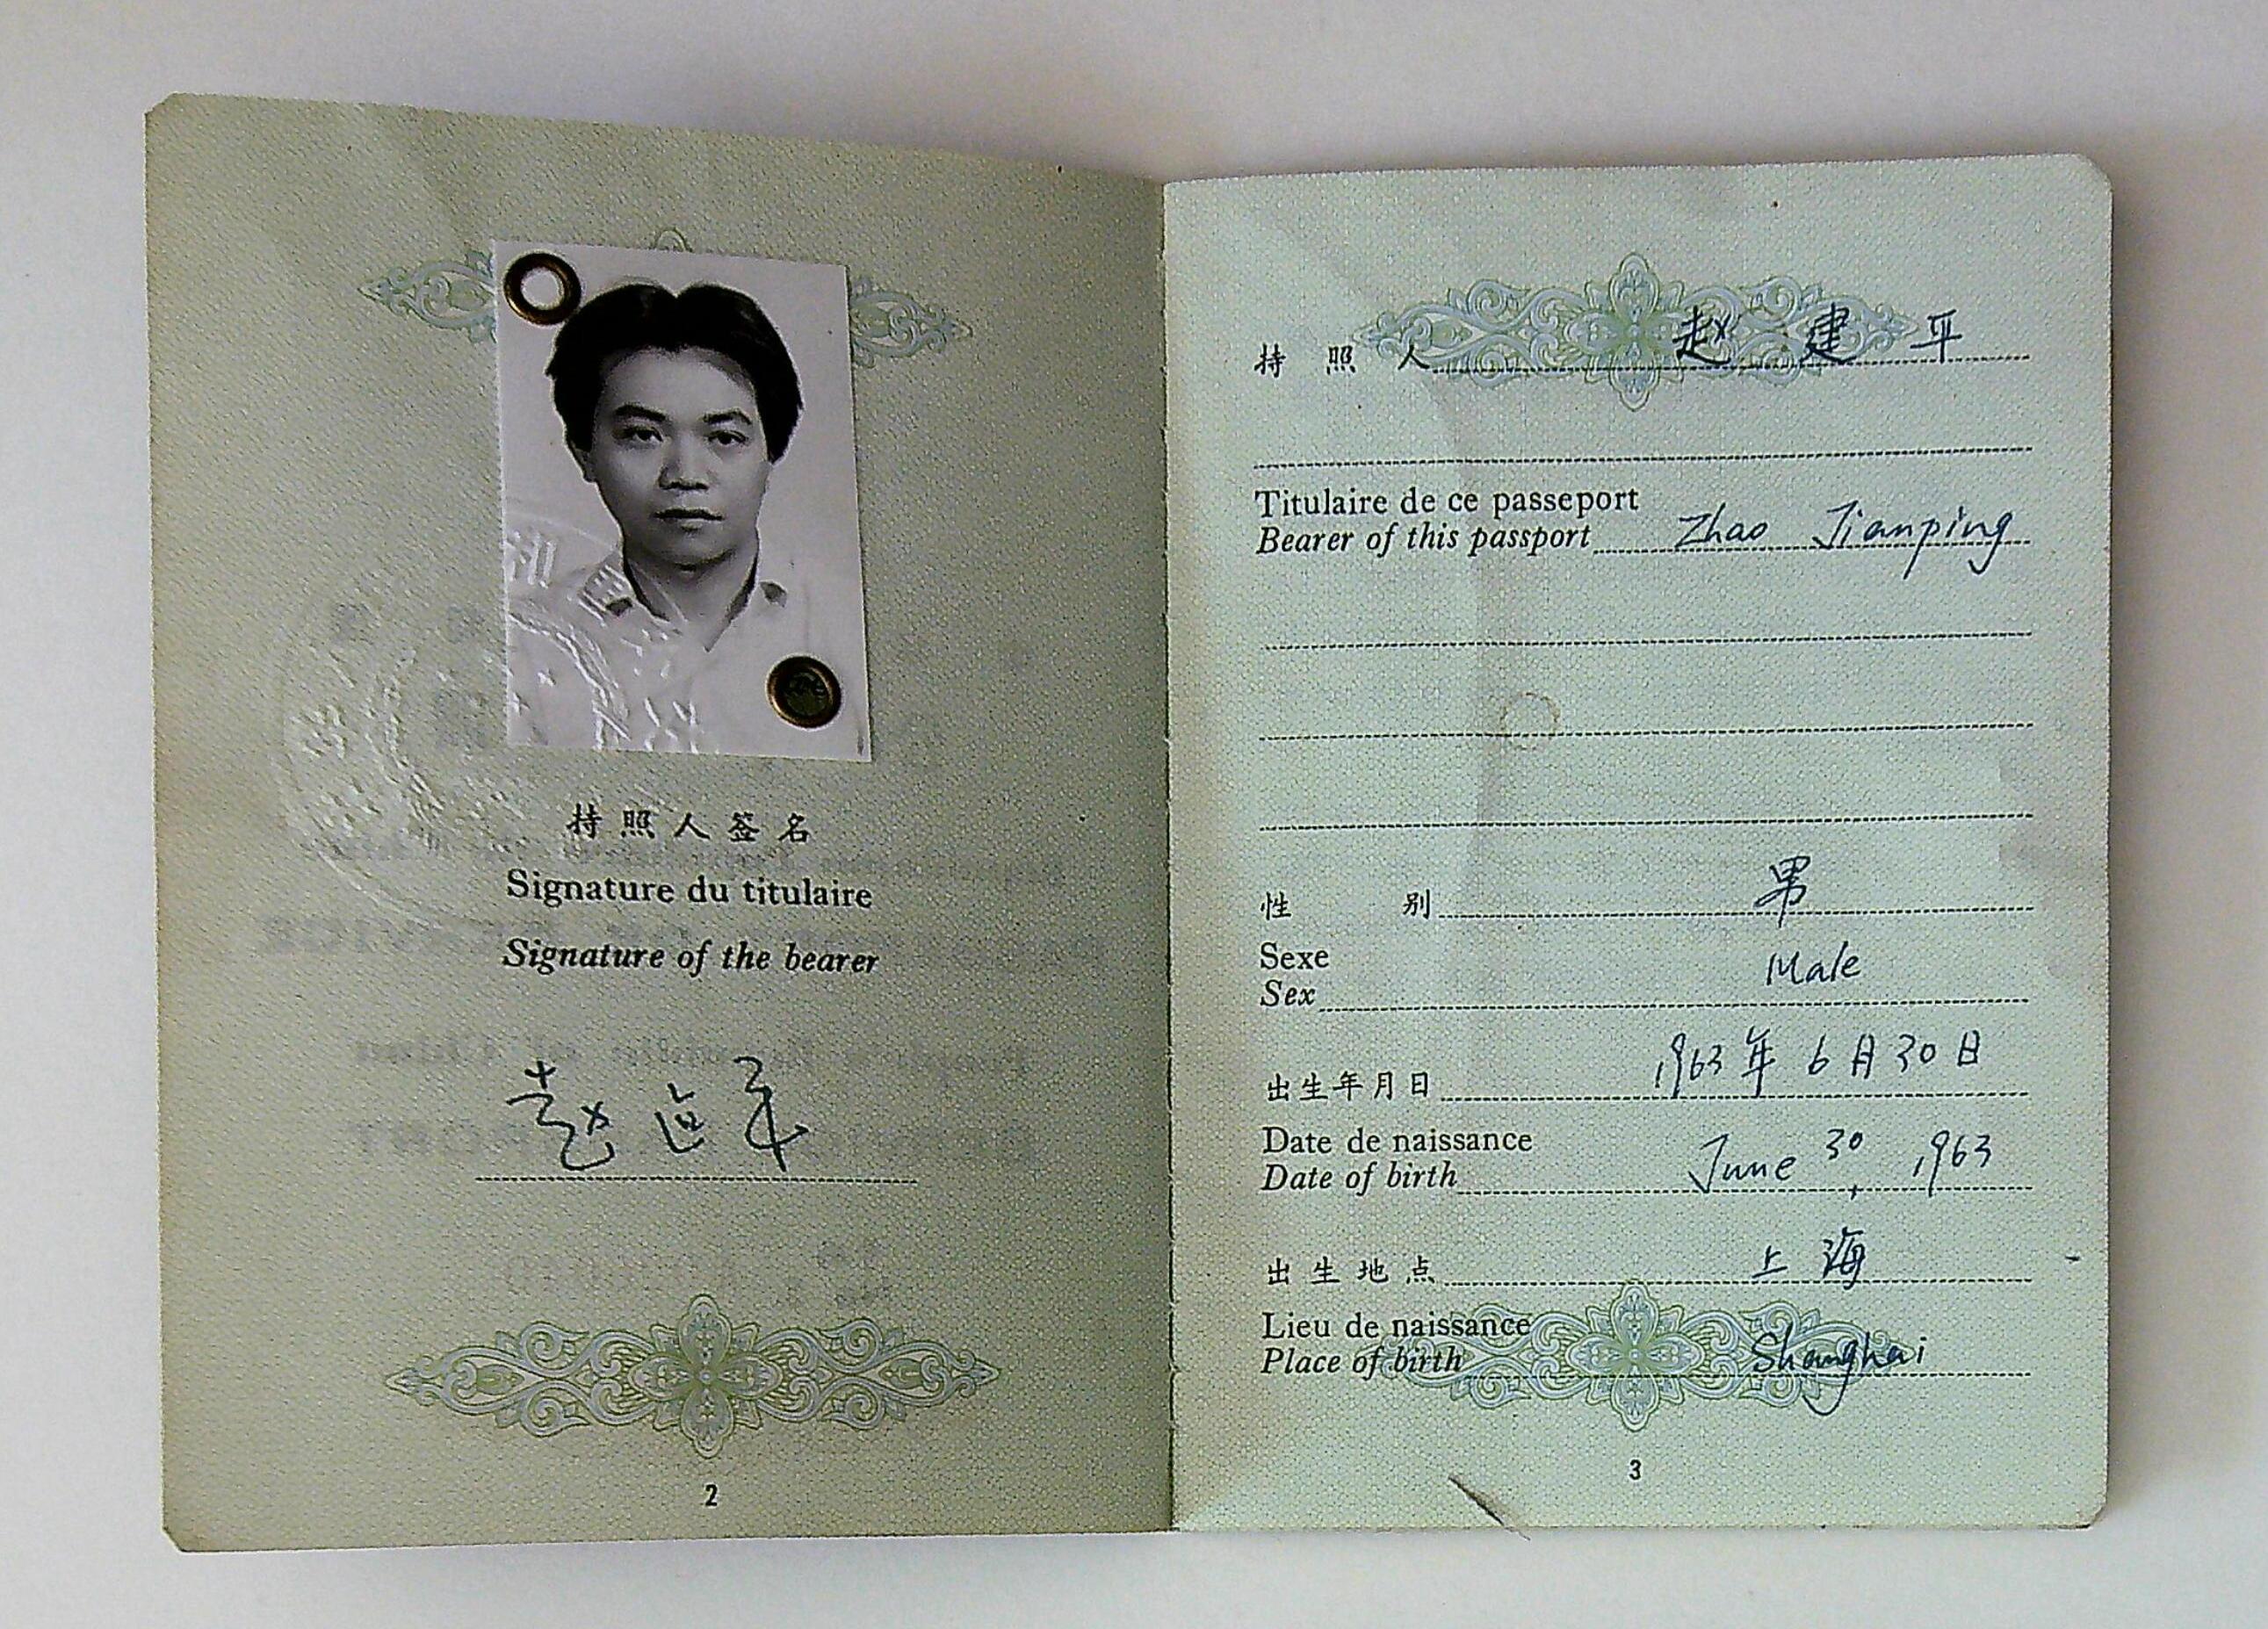 持照人签名
Signature du titulaire
Signature of the bearer
赵建平
2
持照人 赵建平
Titulaire de ce passeport
Bearer of this passport Zhao Jianping
性别 男
Sexe Male
Sex
出生年月日 1963年6月30日
Date de naissance
Date of birth June 30, 1963
出生地点 上海
Lieu de naissance
Place of birth Shanghai
3